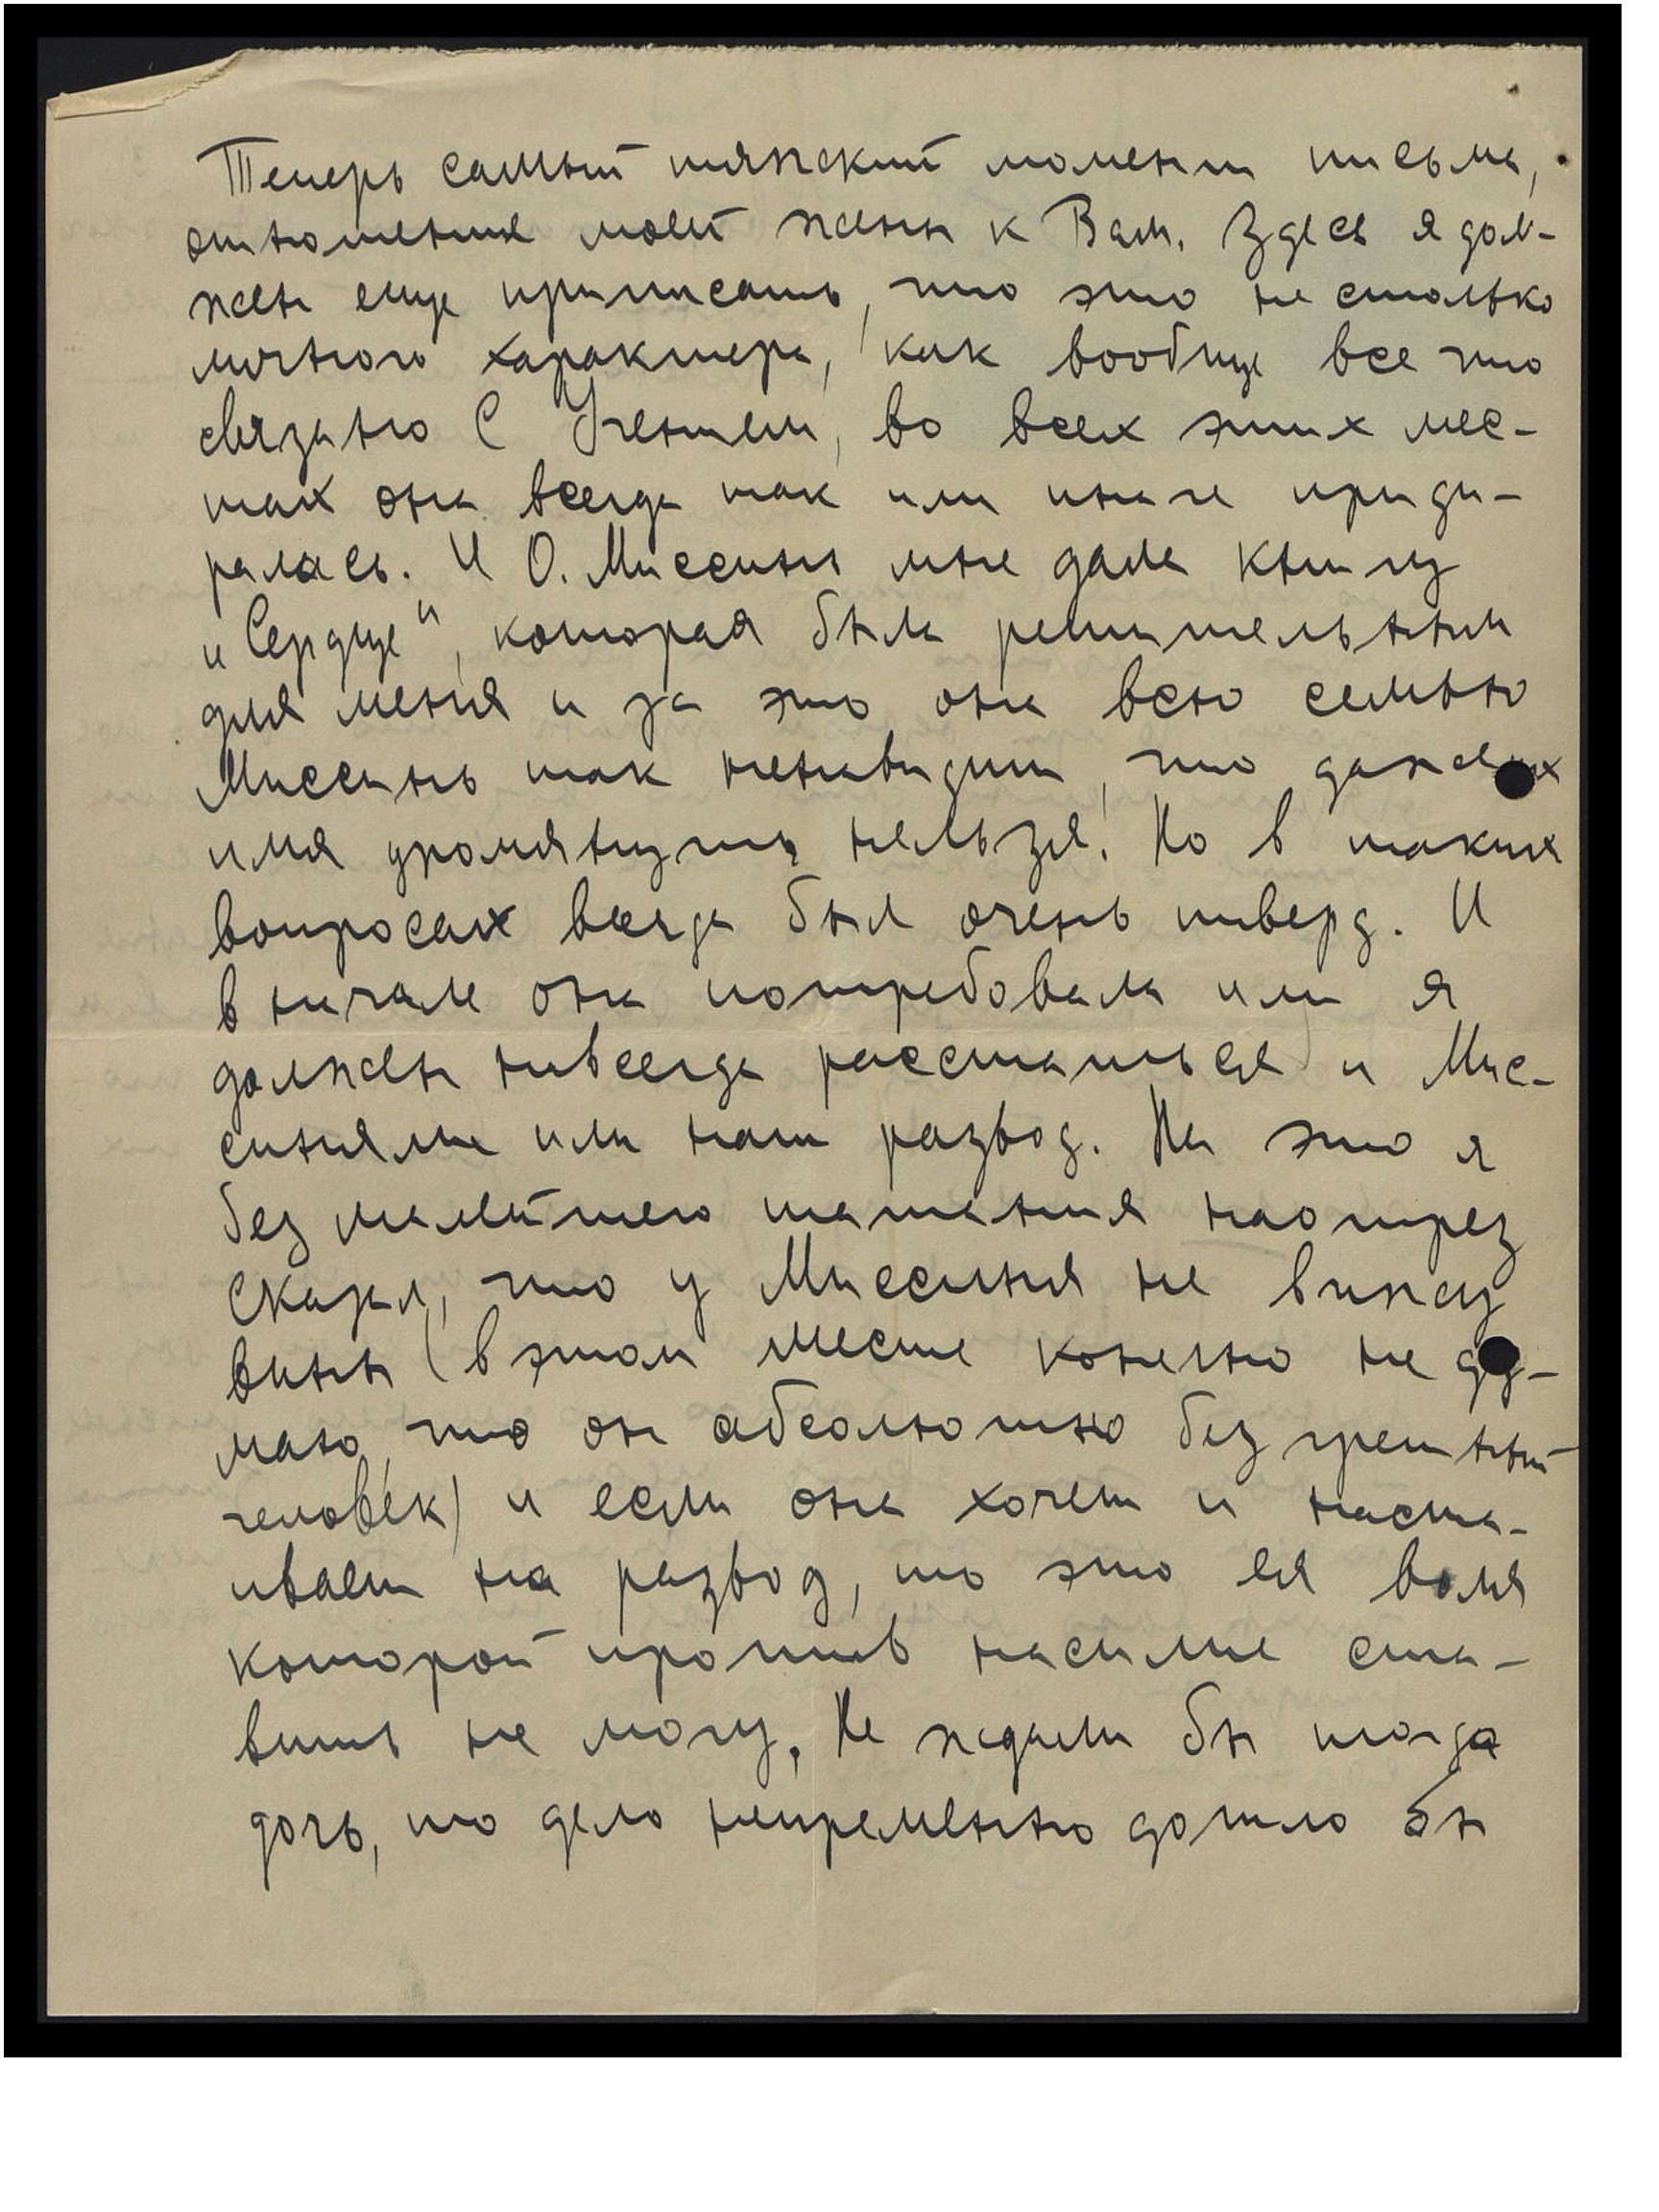 Теперь самый тяжский момент письма,
отношения моей жены к Вам. Здесь я дол-
жен еще приписать, что это не столько
личного характера, как вообще все что
связано с Учением, во всех этих мес-
тах она всегда так или иначе приди-
ралась. И О. Миссинь мне дала книгу
„Сердце", которая была решительным
для меня и за это она всю семью
Миссинь так ненавидит, что даже их
имя упомянуть нельзя! Но в таких
вопросах всегда был очень тверд. И
в начале она потребовала или я
должен навсегда расстаться и Мис-
синями или наш развод. На это я
без малейшего шатания наотрез
сказал, что у Миссиня не вижу
вины (в этом месте конечно не ду-
маю, что он абсолютно безгрешный
человек) и если она хочет и наста-
ивает на развод, то это ея воля
которой против насилие ста-
вить не могу. Не ждали бы тогда
дочь, то дело непременно дошло бы